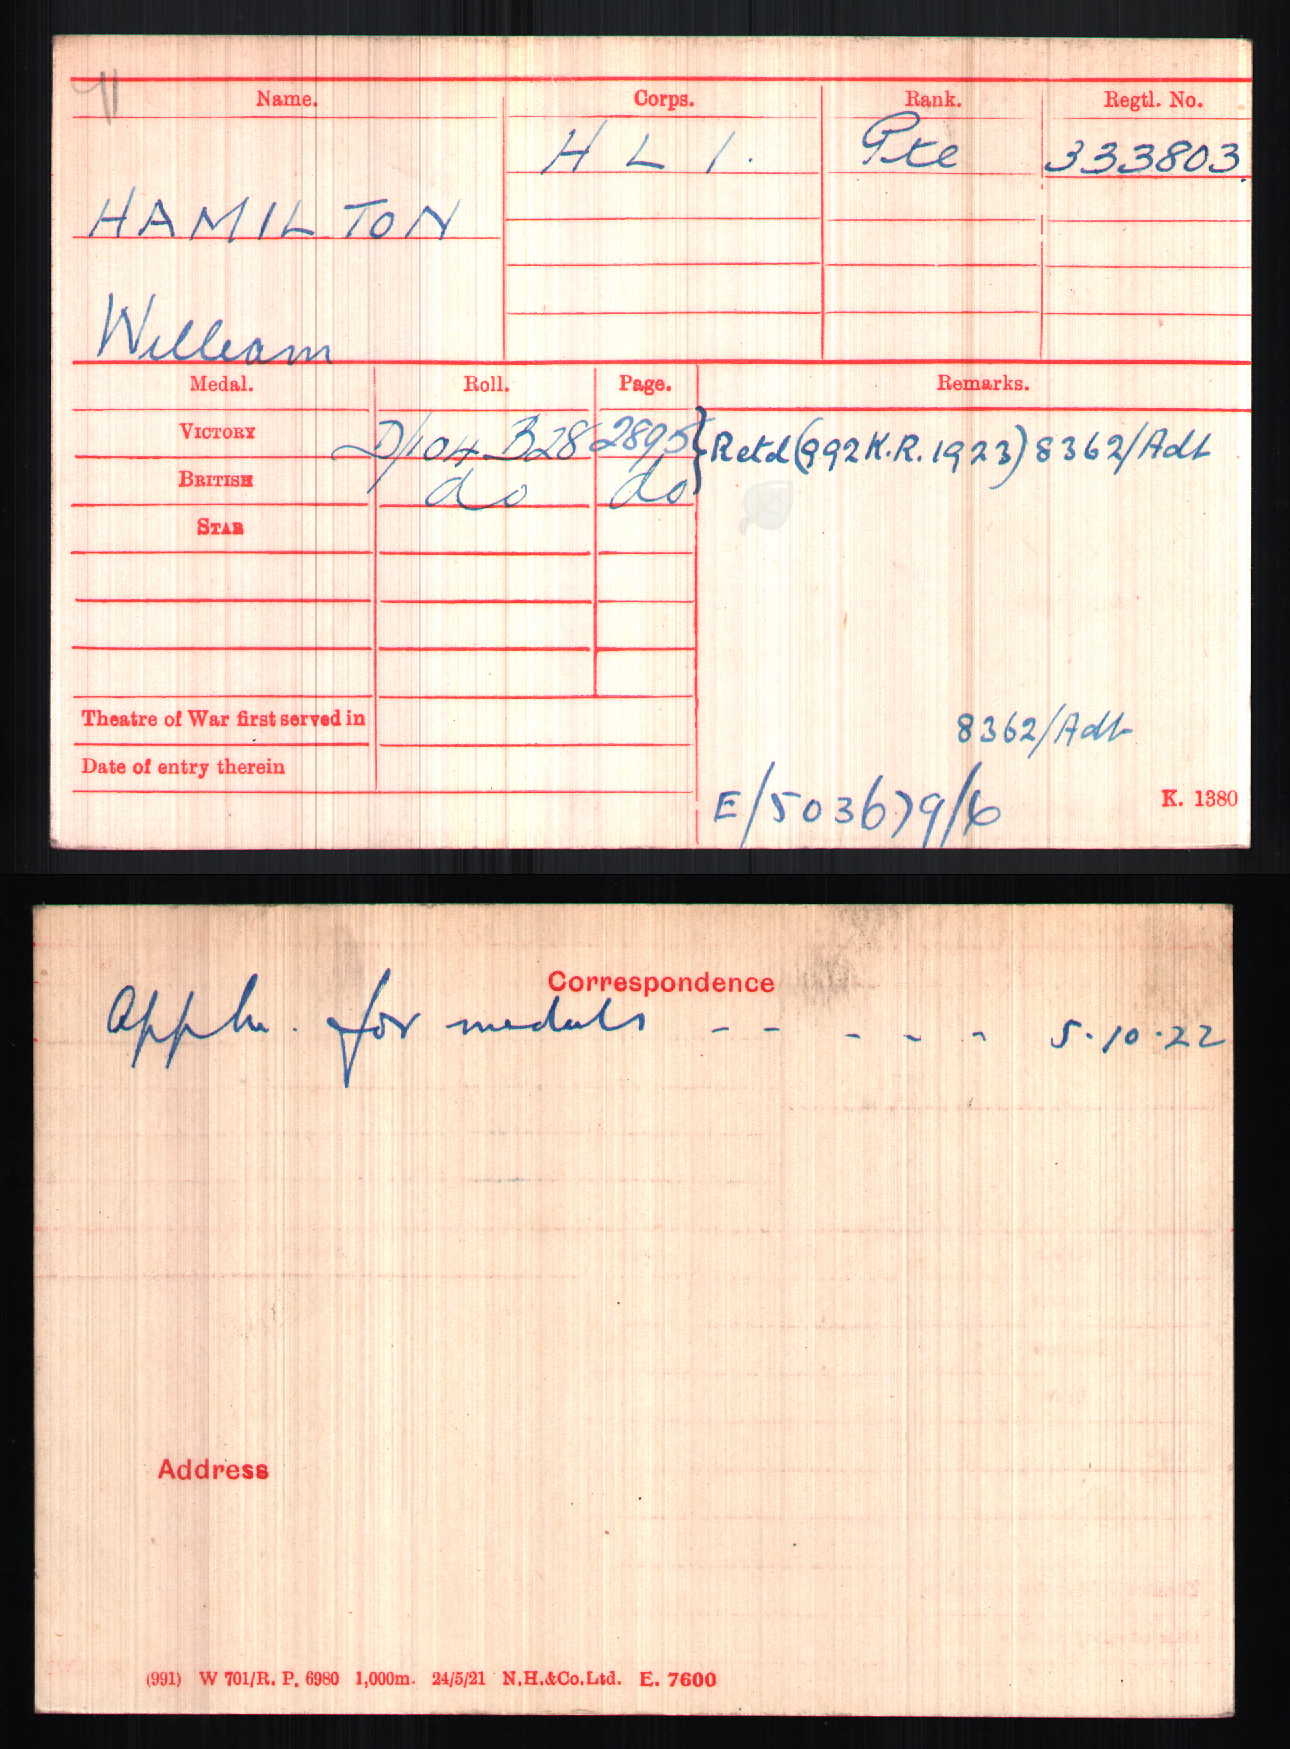 Name. Corps. Rank. Regtl. No.
H L I. Pte 333803.
HAMILTON
William
Medal. Roll. Page. Remarks.
VICTORY D/104 B28 2895 } Retd (992 K.R. 1923) 8362/Adt
BRITISH do do
STAR
Theatre of War first served in
8362/Adt
Date of entry therein
K. 1380
E/503679/6
Correspondence
Appln. for medals - - - - - 5.10.22
Address
(991) W 701/R. P. 6980 1,000m. 24/5/21 N.H.&Co.Ltd. E. 7600